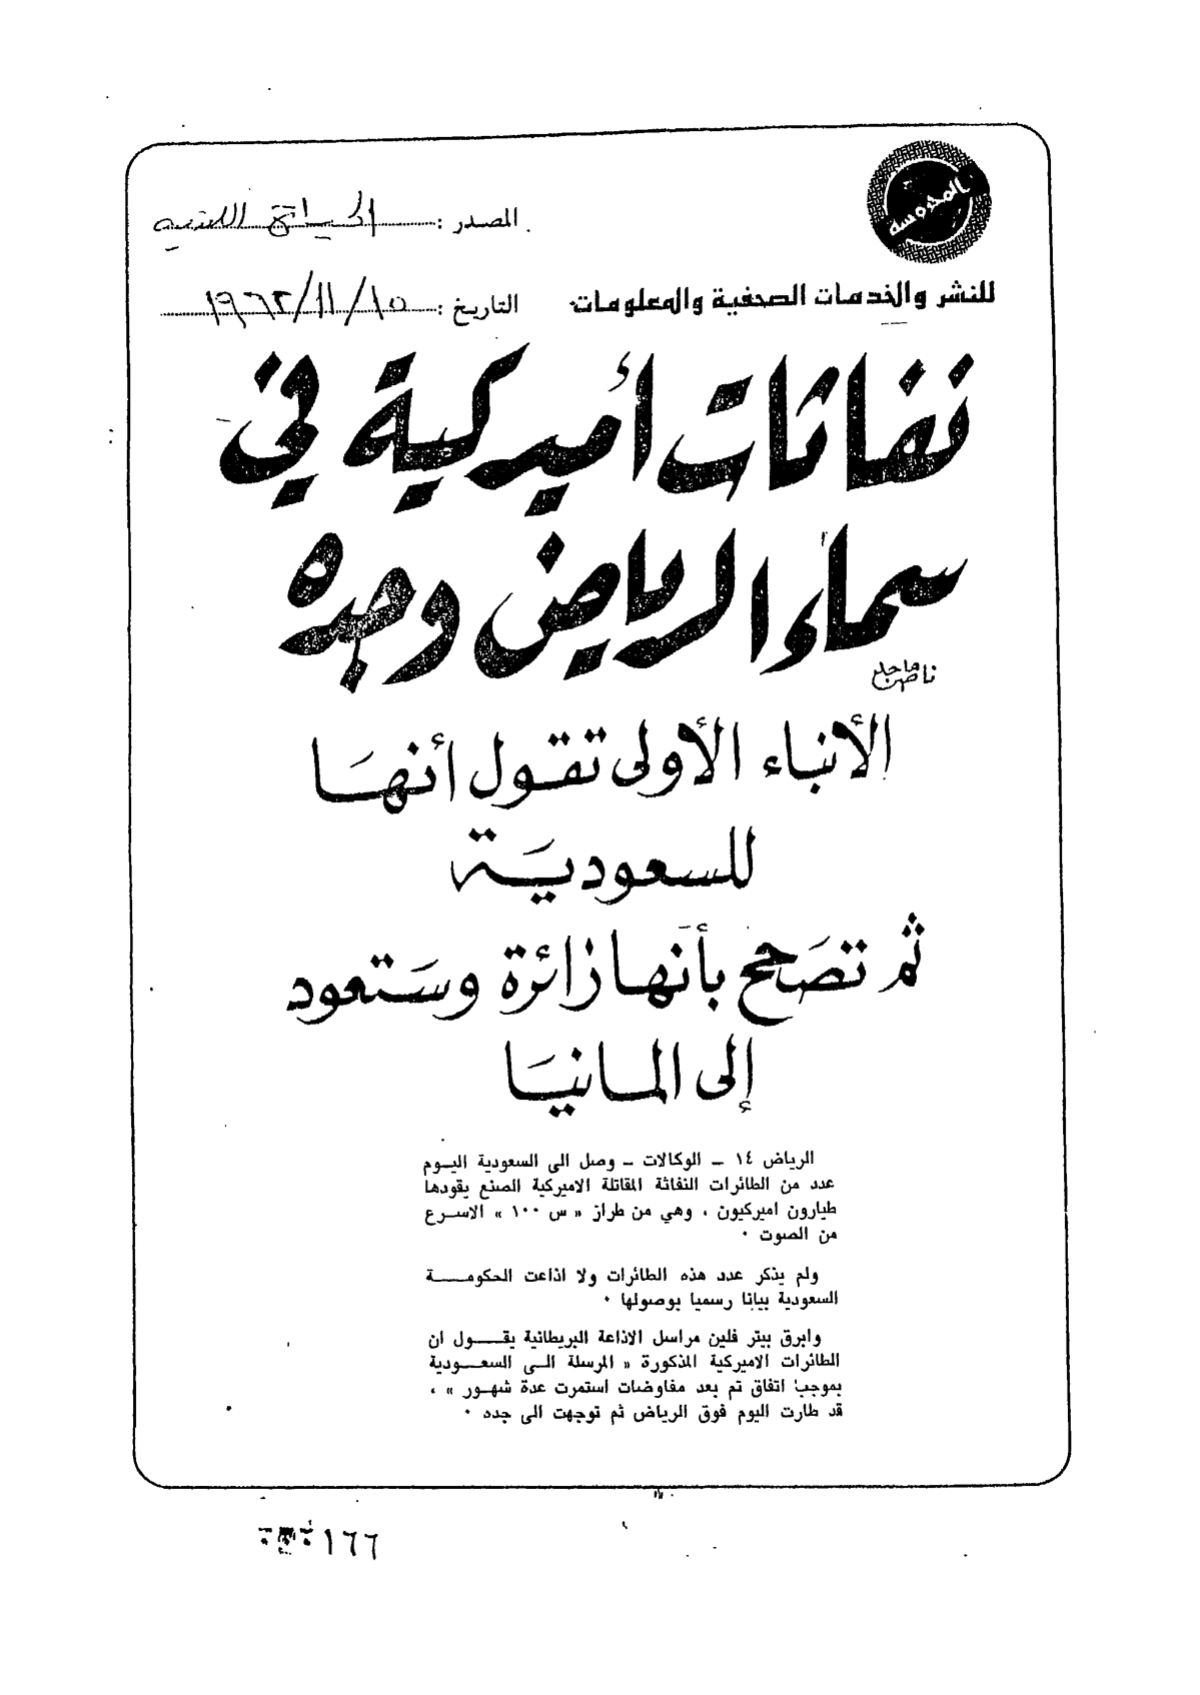 المحروسة
المصدر : الحياة اللندنيه
للنشر والخدمات الصحفية والمعلومات
التاريخ : ١٩٦٢/١١/١٥
نفاثات أميركية في
سماء الرياض وجده
ماجد
الأنباء الأولى تقول أنها
للسعودية
ثم تصحح بأنها زائرة وستعود
إلى المانيا
الرياض ١٤ - الوكالات - وصل الى السعودية اليوم
عدد من الطائرات النفاثة المقاتلة الاميركية الصنع يقودها
طيارون اميركيون ، وهي من طراز « س ١٠٠ » الاسرع
من الصوت ٠
ولم يذكر عدد هذه الطائرات ولا اذاعت الحكومة
السعودية بيانا رسميا بوصولها ٠
وابرق بيتر فلين مراسل الاذاعة البريطانية يقول ان
الطائرات الاميركية المذكورة « المرسلة الى السعودية
بموجب اتفاق تم بعد مفاوضات استمرت عدة شهور » ،
قد طارت اليوم فوق الرياض ثم توجهت الى جده ٠
١٦٦